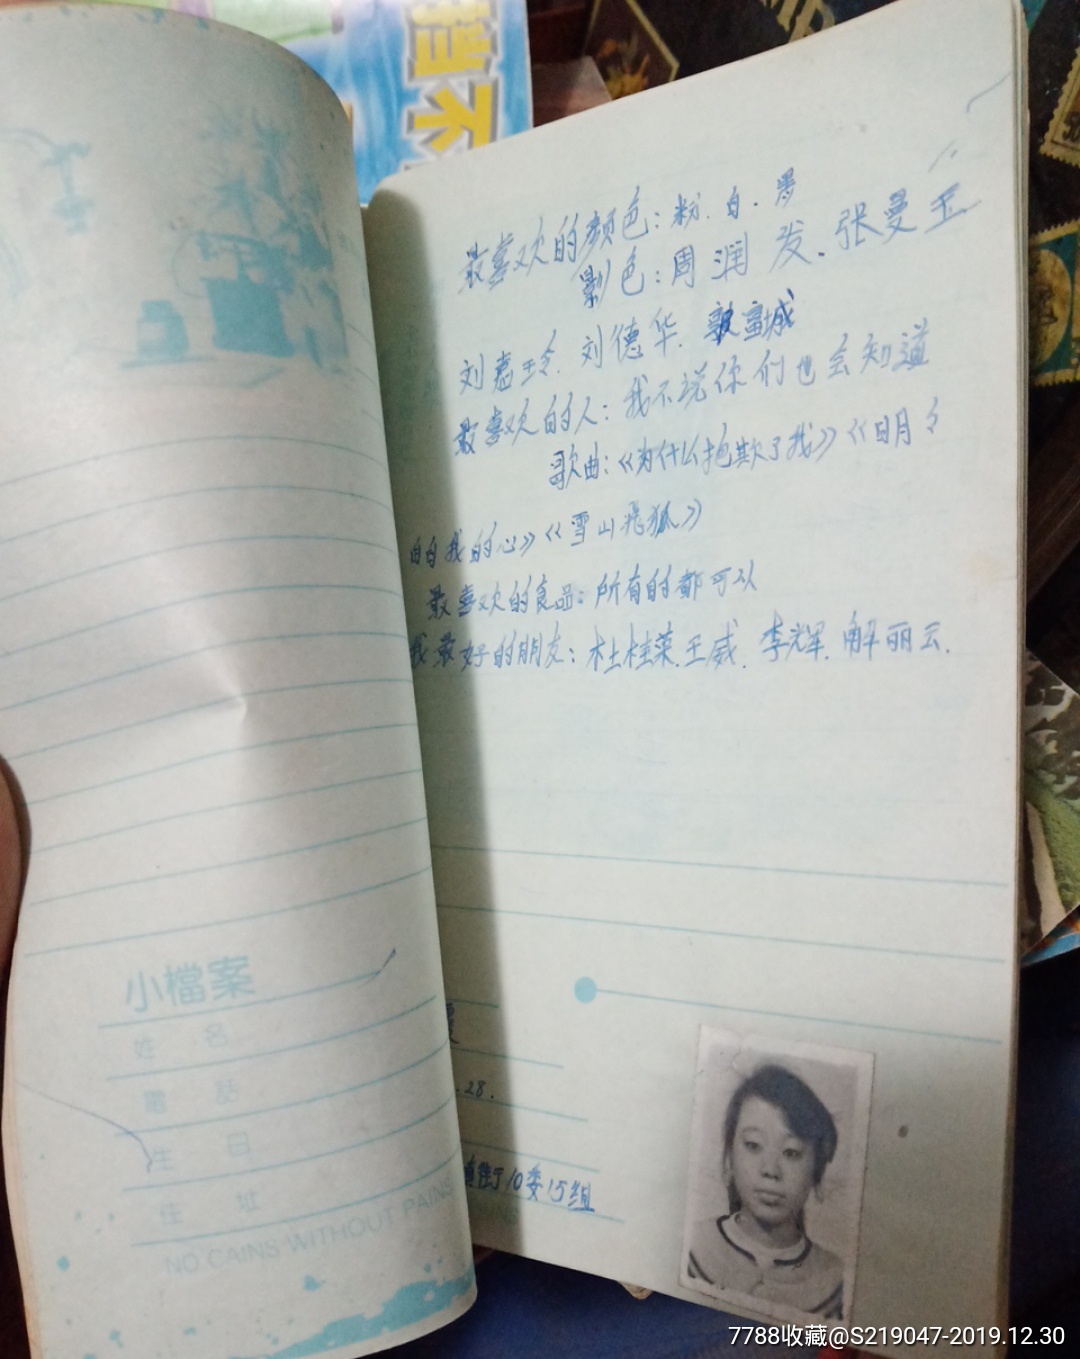 挡不
最喜欢的颜色：粉.白.黑
影色：周润发.张曼玉
刘嘉玲.刘德华.郭富城
最喜欢的人：我不说你们也会知道
歌曲：《为什么抛欺了我》《明々
白白我的心》《雪山飛狐》
最喜欢的食品：所有的都可以
我最好的朋友：杜桂荣.王威.李辉.解丽云.
小檔案
姓名
電話
生日
住址
NO CAINS WITHOUT PAINS
霞
.28.
街10委15组
7788收藏@S219047-2019.12.30